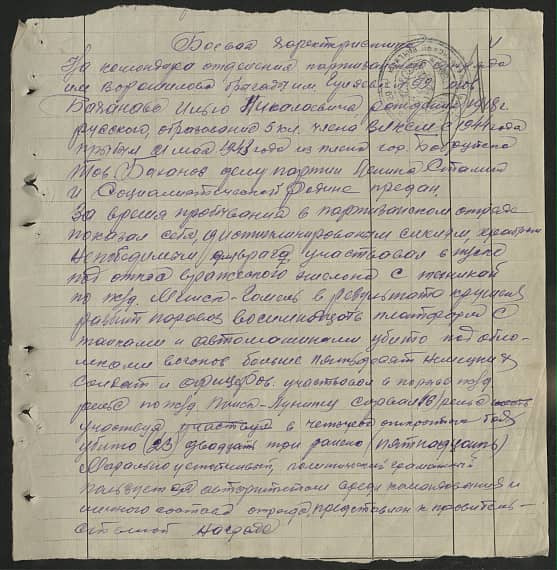 Боевая характеристика
На командира отделения партизанского отряда
им Ворошилова бригады им.
Баханова Илью Николаевича рождения 1918г
русского, образование 5 кл. члена ВЛКСМ с 1944 года
прибыл 21 мая 1943 года из плена гор.
Тов Баханов делу партии Ленина Сталина
и Социалистической Родине предан.
За время пребывания в партизанском отряде
показал себя, дисциплинированным смелым, храбрым
непобедимым врага участвовал в
под откос вражеского эшелона с техникой
по ж/д. Минск-Гомель в результате крушения
разбит паровоз восемнадцать платформ с
танками и автомашинами убито под обло-
мками вагонов больше пятьдесят немецких
солдат и офицеров. участвовал в порыве ж/д
рельс по ж/д. Пинск-Лунинец сорвал 18 рельс
участвуя участвуя в четырех открытых боях
убито (23) двадцать три ранено (пятнадцать)
Морально устойчивый, политически грамотный
пользуется авторитетом среди командования и
личного состава отряда, представлен к правитель-
ственной награде